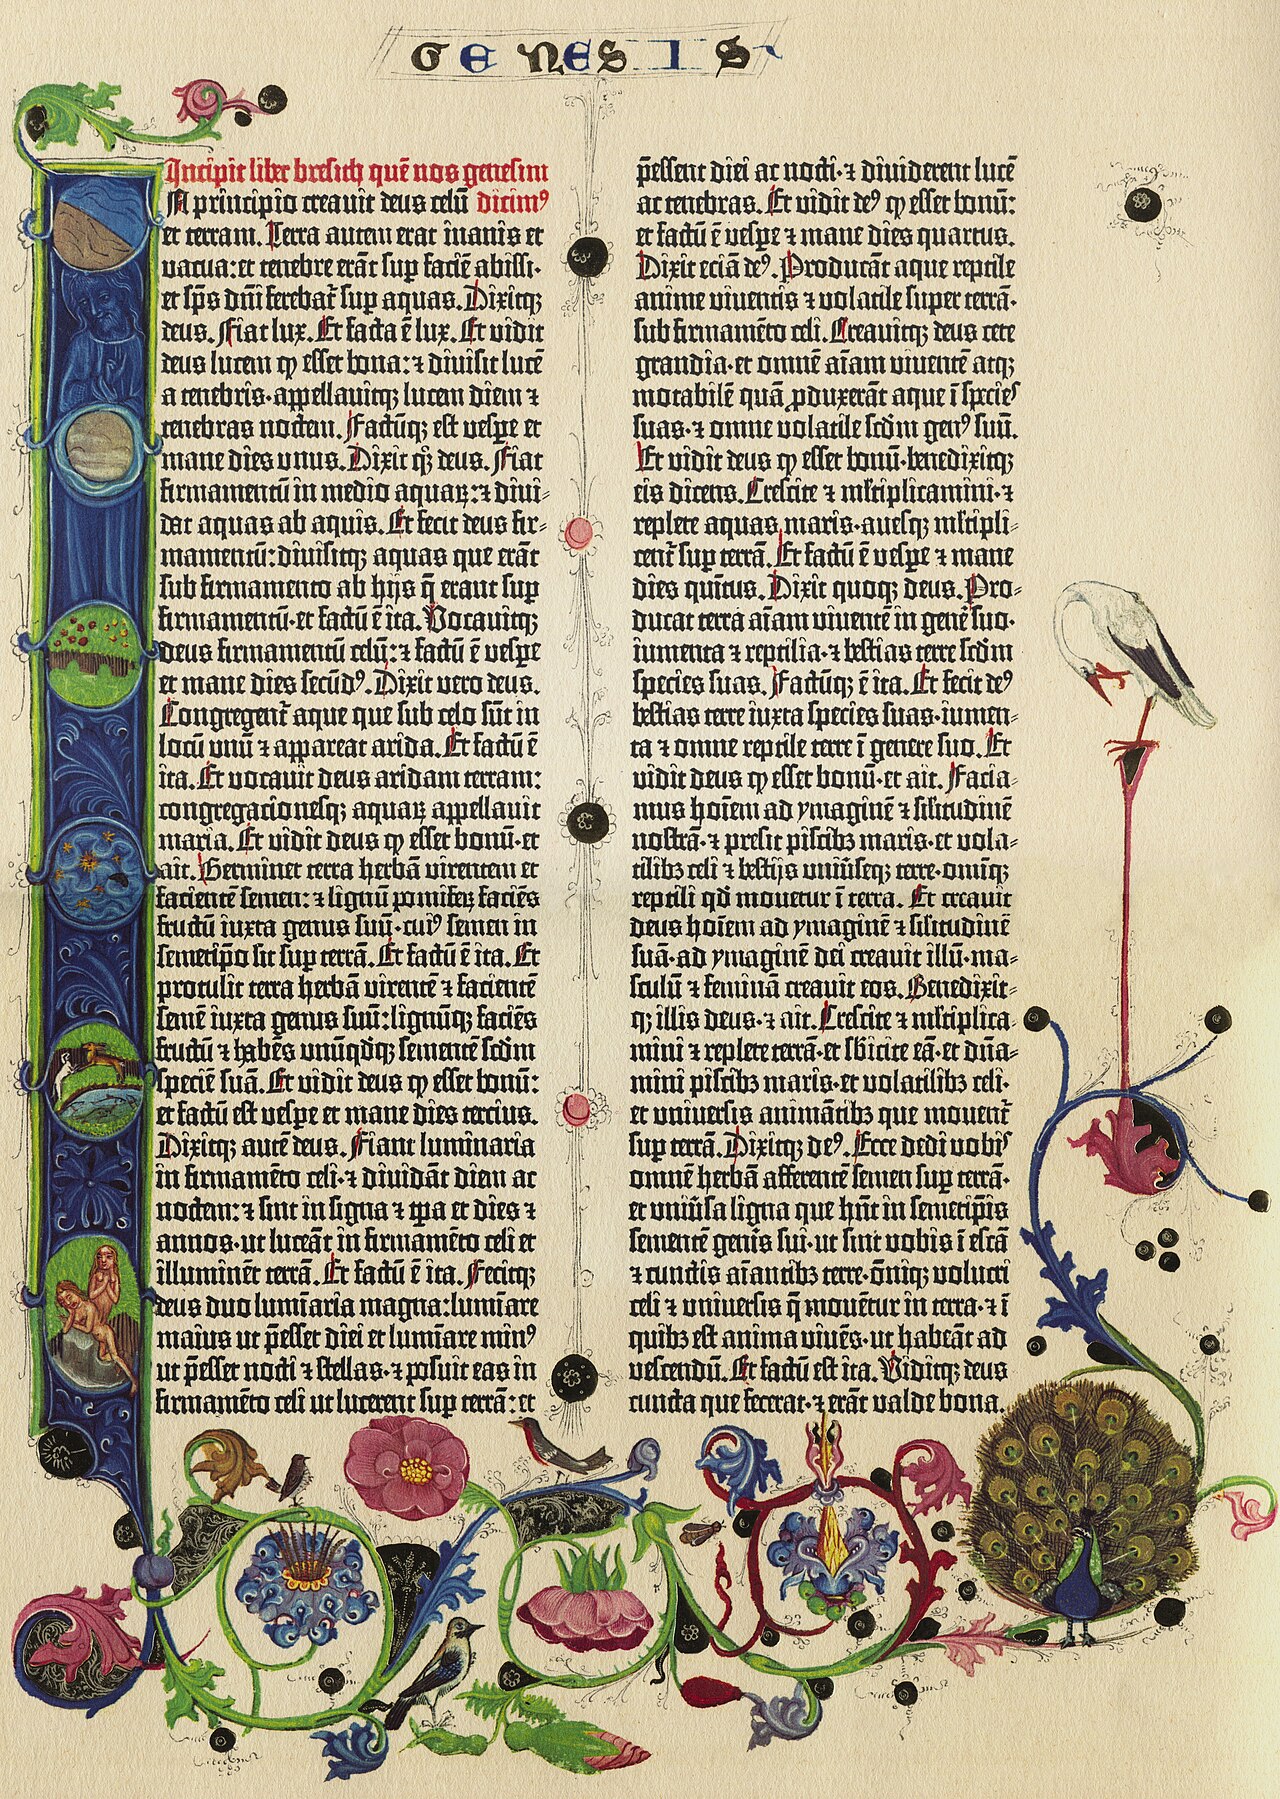 GENESIS
Incipit liber bresich quē nos genesim
IN principio creauit deus celū dicimꝰ
et terram. Terra autem erat inanis et
vacua: et tenebre erāt sup faciē abissi·
et sp̄s dn̄i ferebat̄ sup aquas. Dixitqꝫ
deus. Fiat lux. Et facta ē lux. Et vidit
deus lucem ꝙ esset bona: ⁊ divisit lucē
a tenebris· appellavitqꝫ lucem diem ⁊
tenebras noctem. Factūqꝫ est vespe et
mane dies vnus. Dixit qꝫ deus. Fiat
firmamentū in medio aquaꝝ: ⁊ divi-
dat aquas ab aquis. Et fecit deus fir-
mamentū: divisitqꝫ aquas que erāt
sub firmamento ab hijs q̄ erant sup
firmamentū· et factū ē ita. Vocavitqꝫ
deus firmamentū celū: ⁊ factū ē vespe
et mane dies secūdꝰ. Dixit vero deus.
Congregent̄ aque que sub celo sūt in
locū vnū ⁊ appareat arida. Et factū ē
ita. Et vocavit deus aridam terram:
congregacionesqꝫ aquaꝝ appellavit
maria. Et vidit deus ꝙ esset bonū· et
ait. Germinet terra herbā virentem et
facientē semen: ⁊ lignū pomifeꝝ faciēs
fructū iuxta genus suū· cuiꝰ semen in
semetip̄o sit sup terrā. Et factū ē ita. Et
protulit terra herbā virentē ⁊ facientē
semē iuxta genus suū: lignūqꝫ faciēs
fructū ⁊ habēs vnūqdqꝫ sementē scdm
speciē suā. Et vidit deus ꝙ esset bonū:
et factū est vespe et mane dies tercius.
Dixitqꝫ autē deus. Fiant luminaria
in firmamēto celi· ⁊ dividāt diem ac
noctem: ⁊ sint in signa ⁊ tp̄a et dies ⁊
annos· ut luceāt in firmamēto celi et
illuminēt terrā. Et factū ē ita. Fecitqꝫ
deus duo lumīaria magna: lumīare
maius ut p̄esset diei et lumīare minꝰ
ut p̄esset nocti ⁊ stellas· ⁊ posuit eas in
firmamēto celi ut lucerent sup terrā: et
p̄essent diei ac nocti· ⁊ dividerent lucē
ac tenebras. Et vidit deꝰ ꝙ esset bonū:
et factū ē vespe ⁊ mane dies quartus.
Dixit eciā deꝰ. Producāt aque reptile
anime viventis ⁊ volatile super terrā·
sub firmamēto celi. Creavitqꝫ deus cete
grandia· et omnē aīam viventē atqꝫ
motabilē quā ꝓduxerāt aque ī species
suas· ⁊ omne volatile scdm genꝰ suū.
Et vidit deus ꝙ esset bonū· benedixitqꝫ
eis dicens. Crescite ⁊ mltiplicamini· ⁊
replete aquas maris· avesqꝫ mltipli-
cent̄ sup terrā. Et factū ē vespe ⁊ mane
dies quītus. Dixit quoqꝫ deus. Pro-
ducat terra aīam viventē in genē suo·
iumenta ⁊ reptilia· ⁊ bestias terre scdm
species suas. Factūqꝫ ē ita. Et fecit deꝰ
bestias terre iuxta species suas· iumen-
ta ⁊ omne reptile terre ī genere suo. Et
vidit deus ꝙ esset bonū· et ait. Facia-
mus hoīem ad ymaginē ⁊ silitudinē
nostrā· ⁊ presit piscibꝫ maris· et vola-
tilibꝫ celi ⁊ bestijs univseqꝫ terre· omīqꝫ
reptili qd movetur ī terra. Et creavit
deus hoīem ad ymaginē ⁊ silitudinē
suā· ad ymaginē dei creavit illū· ma-
sculū ⁊ feminā creavit eos. Benedixit-
qꝫ illis deus· ⁊ ait. Crescite ⁊ mltiplica-
mini ⁊ replete terrā· et sbicite eā· et dn̄a-
mini piscibꝫ maris· et volatilibꝫ celi·
et universis animātibꝫ que movent̄
sup terrā. Dixitqꝫ deꝰ. Ecce dedi vobis
omnē herbā afferentē semen sup terrā·
et univsa ligna que hn̄t in semetip̄is
sementē genis sui· ut sint vobis ī escā
⁊ cunctis aīantibꝫ terre· ōniqꝫ volucri
celi ⁊ universis q̄ movētur in terra· ⁊ ī
quibꝫ est anima vivēs· ut habeāt ad
vescendū. Et factū est ita. Viditqꝫ deus
cuncta que fecerat· ⁊ erāt valde bona.